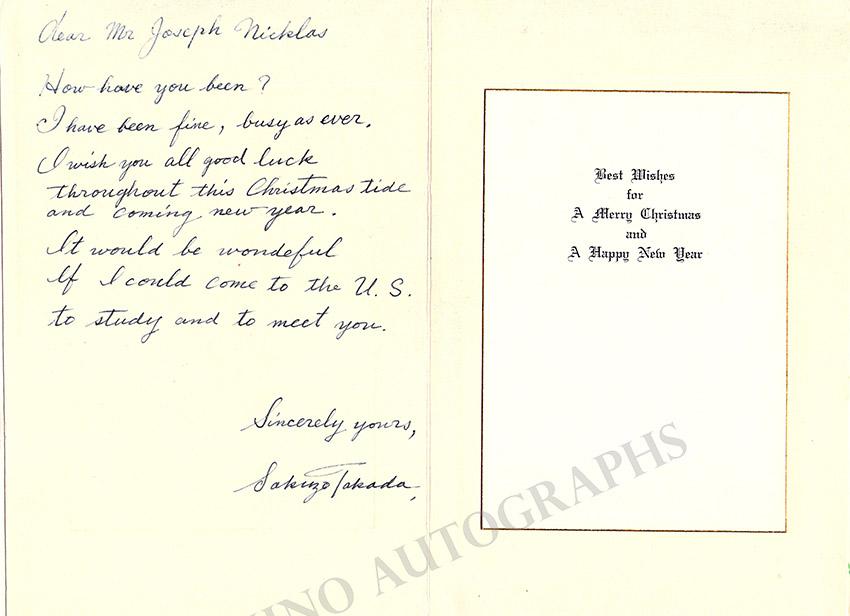 Dear Mr Joseph Nicklas
How have you been?
I have been fine, busy as ever.
I wish you all good luck
throughout this Christmas tide
and coming new year.
It would be wondeful
If I could come to the U.S.
to study and to meet you.
Sincerely yours,
Sakuzo Takada,
Best Wishes
for
A Merry Christmas
and
A Happy New Year
INO AUTOGRAPHS